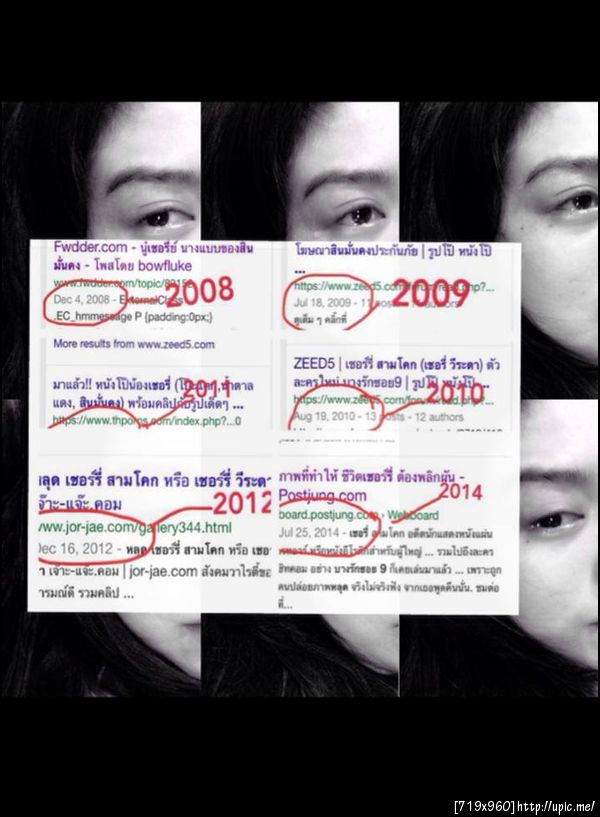 Fwdder.com - นู๋เชอรีย์ นางแบบของสิน
มั่นคง - โพสโดย bowfluke
Dec 4, 2008 - ExternalClass
.EC_hmmessage P {padding:0px;}
2008
โฆษณาสินมั่นคงประกันภัย | รูปโป๊ หนังโป๊
...
https://www.zeed5.com/
Jul 18, 2009 - 11 posts - authors
ดูเต็ม ๆ คลิ๊กที่
2009
More results from www.zeed5.com
มาแล้ว!! หนังโป๊น้องเชอรี่
แดง, สินมั่นคง) พร้อมคลิป
https://www.thporns.com/index.php?...0
2011
ZEED5 | เชอร์รี่ สามโคก (เชอรี่ วีระดา) ตัว
ละครใหม่ บางรักซอย9 | รูปโป๊ หนังโป๊ ...
https://www.zeed5.com/
Aug 19, 2010 - 13 posts - 12 authors
2010
หลุด เชอร์รี่ สามโคก หรือ เชอร์รี่ วีระดา
จ๊าะ-แจ๊ะ.คอม
www.jor-jae.com/gallery344.html
Dec 16, 2012 - หลุด เชอร์รี่ สามโคก หรือ เชอร
า เจ๊าะ-แจ๊ะ.คอม | jor-jae.com สังคมวาไรตี้ขอ
ารมณ์ดี รวมคลิป ...
2012
ภาพที่ทำให้ ชีวิตเชอร์รี่ ต้องพลิกผัน -
Postjung.com
board.postjung.com › Webboard
Jul 25, 2014 - เชอรี่ สามโคก อดีตนักแสดงหนังแผ่น
สำหรับผู้ใหญ่ ... รวมไปถึงละคร
ฮิทคอม อย่าง บางรักซอย 9 ก็เคยเล่นมาแล้ว ... เพราะถูก
คนปล่อยภาพหลุด จริงไม่จริงฟัง จากเธอพูดคืนนั้น. ชมต่อ
ที่...
2014
[719x960] http://upic.me/